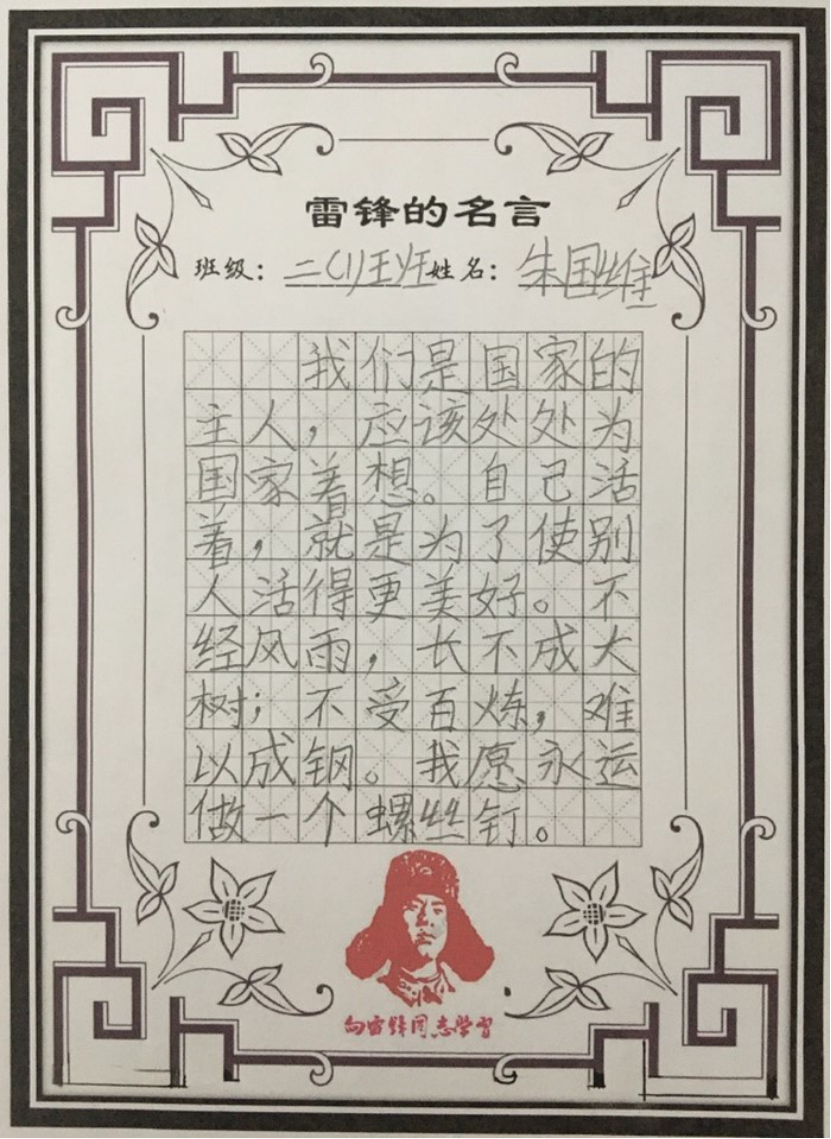 雷锋的名言
班级：二(1)班 姓名：朱国维
我们是国家的
主人，应该处处为
国家着想。自己活
着，就是为了使别
人活得更美好。不
经风雨，长不成大
树；不受百炼，难
以成钢。我愿永运
做一个螺丝钉。
向雷锋同志学习